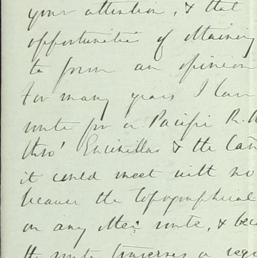 your attention, & that
opportunities of obtaining
to form an opinion
For many years I have
route for a Pacific R.R
thro' Encinillas & the Cañ
it could meet with no
because the topographical
on any other route, & bec
the route traverses a regi